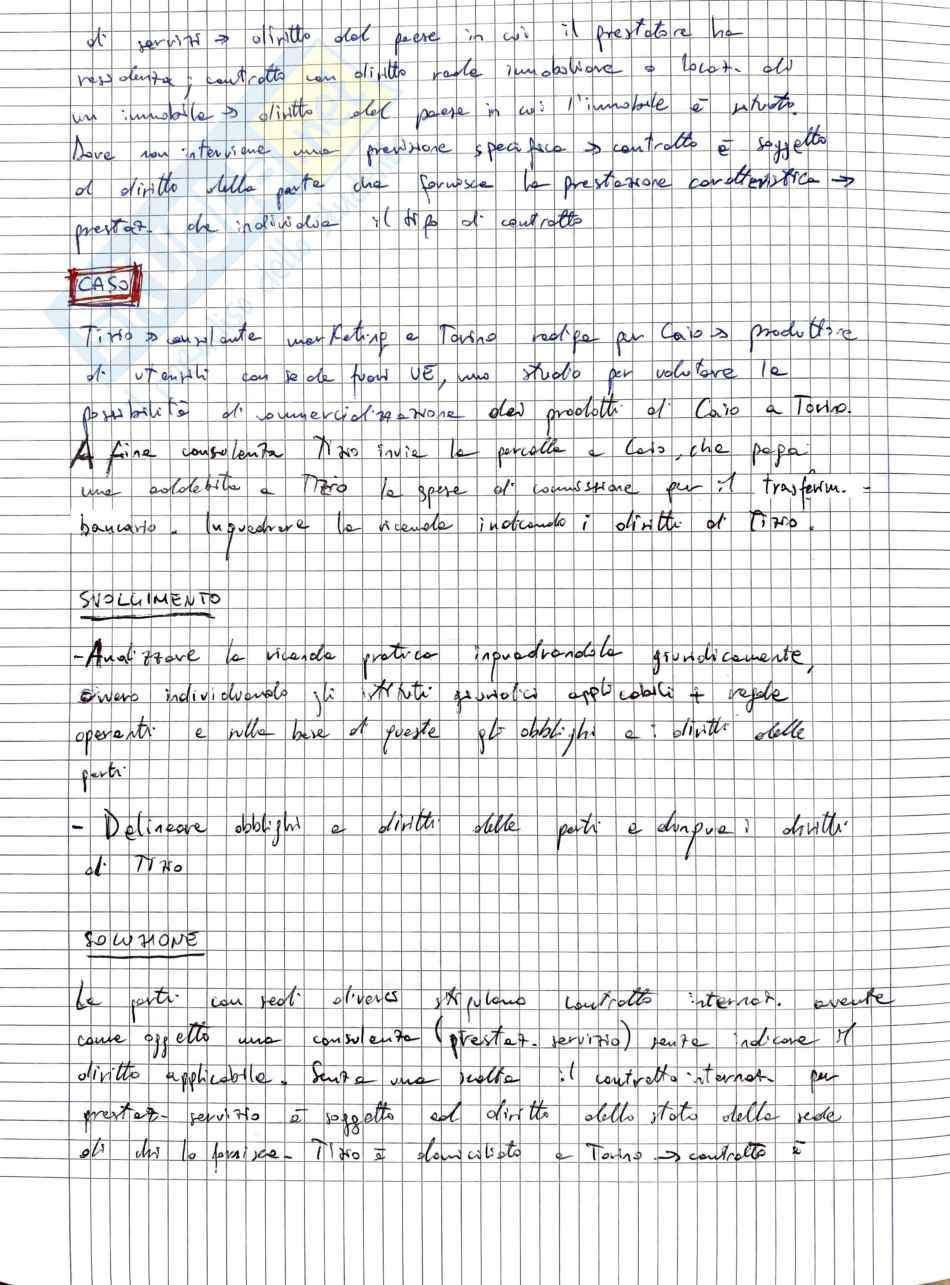 di servizi → diritto del paese in cui il prestatore ha
residenza; contratto con diritto reale immobiliare o locaz. di
un immobile → diritto del paese in cui l'immobile è situato.
Dove non interviene una previsione specifica → contratto è soggetto
al diritto della parte che fornisce la prestazione caratteristica →
prestaz. che individua il tipo di contratto
CASO
Tizio → consulente marketing a Torino redige per Caio → produttore
di utensili con sede fuori UE, uno studio per valutare la
possibilità di commercializzazione dei prodotti di Caio a Torino.
A fine consulenza Tizio invia la parcella a Caio, che paga
ma addebita a Tizio le spese di commissione per il trasferim.
bancario. Inquadrare la vicenda indicando i diritti di Tizio.
SVOLGIMENTO
- Analizzare la vicenda pratica inquadrandola giuridicamente,
ovvero individuando gli istituti giuridici applicabili + regole
operanti e sulla base di queste gli obblighi e i diritti delle
parti
- Delineare obblighi e diritti delle parti e dunque i diritti
di Tizio
SOLUZIONE
Le parti con sedi diverse stipulano contratto internaz. avente
come oggetto una consulenza (prestaz. servizio) senza indicare il
diritto applicabile. Senza una scelta il contratto internaz. per
prestaz. servizio è soggetto al diritto dello stato della sede
di chi lo fornisce. Tizio è domiciliato a Torino → contratto è